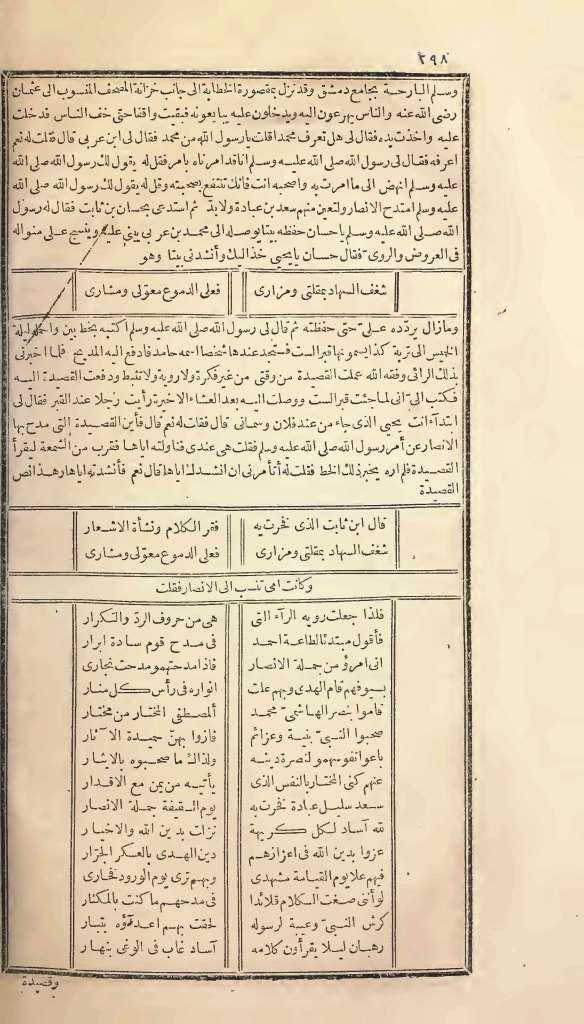 ٢٩٨
وسلم البارحة بجامع دمشق وقد نزل بمقصورة الخطابة الى جانب خزانة المصحف المنسوب الى عثمان
رضى الله عنه والناس يهرعون اليه ويدخلون عليه يبايعونه فبقيت واقفا حتى خف الناس فدخلت
عليه وأخذت يده فقال لى هل تعرف محمدا قلت يا رسول الله من محمد فقال لى ابن عربى قال فقلت له نعم
اعرفه فقال لى رسول الله صلى الله عليه وسلم انا قد امرناه بامر فقل له يقول لك رسول الله صلى الله
عليه وسلم انهض الى ما امرت به واصحبه انت فانك تنتفع بصحبته وقل له يقول لك رسول الله صلى الله
عليه وسلم امتدح الانصار ولتعين منهم سعد بن عبادة ولابد ثم استدعى بحسان بن ثابت فقال له رسول
الله صلى الله عليه وسلم يا حسان حفظه بيتا يوصله الى محمد بن عربى يبنى عليه وينسج على منواله
فى العروض والروى فقال حسان يا يحيى خذ اليك وأنشدنى بيتا وهو
شغف السهاد بمقلتى ومزارى فعلى الدموع معولى ومشارى
ومازال يردده علىّ حتى حفظته ثم قال لى رسول الله صلى الله عليه وسلم اكتبه بخط بين واحمله ليلة
الخميس الى تربة كذا يسمونها قبر الست فستجد عندها شخصا اسمه حامد فادفع اليه المديح فلما اخبرنى
بذلك الرائى وفقه الله عملت القصيدة من وقتى من غير فكرة ولا روية ولا تثبط ودفعت القصيدة اليه
فكتب الى انى لما جئت قبر الست ووصلت اليه بعد العشاء الاخيرة رأيت رجلا عند القبر فقال لى
ابتداء انت يحيى الذى جاء من عند فلان وسمانى قال فقلت له نعم قال فأين القصيدة التى مدح بها
الانصار عن أمر رسول الله صلى الله عليه وسلم فقلت هى عندى فناولته اياها فقرب من الشمعة ليقرأ
القصيدة فلم اره يخبر ذلك الخط فقلت له أتأمرنى ان انشدك اياها قال نعم فأنشدته اياها وهذا نص
القصيدة
قال ابن ثابت الذى فخرت به فقر الكلام ونشأة الاشعار
شغف السهاد بمقلتى ومزارى فعلى الدموع معولى ومشارى
وكانت امى تنسب الى الانصار فقلت
فلذا جعلت رويه الرآء التى هى من حروف الردّ والتكرار
فأقول مبتدئا لطاعة احمد فى مدح قوم سادة ابرار
انى امرؤ من جملة الانصار فاذا مدحتهمو مدحت نجارى
بسيوفهم قام الهدى وبهم علت انواره فى رأس كل منار
قاموا بنصر الهاشمىّ محمد المصطفى المختار من مختار
صحبوا النبىّ بنية وعزائم فازوا بهنّ حميدة الآثار
باعوا نفوسهمو لنصرة دينه ولذاك ما صحبوه بالايثار
عنهم كنى المختار بالنفس الذى يأتيه من يمن مع الاقدار
سعد سليل عبادة فخرت به يوم السقيفة جملة الانصار
لله آساد لكل كريهة نزلت بدين الله والاخيار
عزوا بدين الله فى اعزازهم دين الهدى بالعسكر الجرّار
فيهم علا يوم القيامة مشهدى وبهم ترى يوم الورود فخارى
لو أننى صغت الكلام قلائدا فى مدحهم ما كنت بالمكثار
كرش النبىّ وعيبة لرسوله لحقت بهم اعداؤه بتبار
رهبان ليلا يقرأون كلامه آساد غاب فى الوغى بنهار
وقصيدة